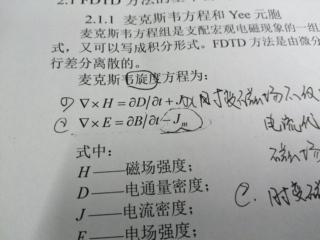 2.1 FDTD 方法的基本
2.1.1 麦克斯韦方程和 Yee 元胞
麦克斯韦方程组是支配宏观电磁现象的一组
式，又可以写成积分形式。FDTD 方法是由微分
行差分离散的。
麦克斯韦旋度方程为：
① ∇×H = ∂D/∂t + 时变磁场不仅
② ∇×E = ∂B/∂t − Jm 电流
式中：
磁场
H——磁场强度；
D——电通量密度；
②. 时变磁
J——电流密度；
E——电场强度；